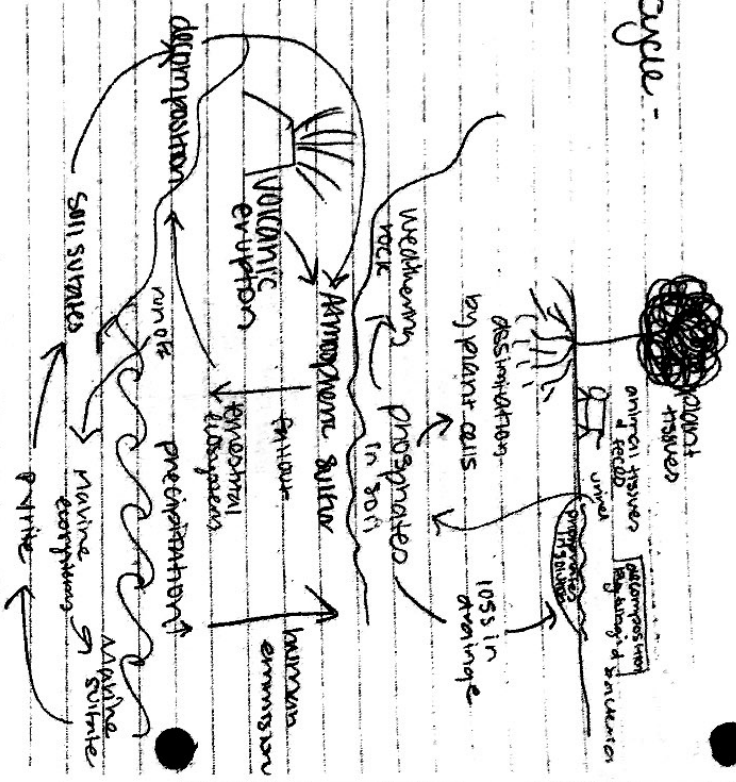 cycle -
plant
tissues
animal tissues
& feces
urine
decomposition
by fungi & bacteria
phosphates
in solution
assimilation
by plant cells
loss in
drainage
phosphates
in soil
weathering
rock
Atmospheric sulfur
volcanic
eruption
fallout
human
emmission
terrestrial
ecosystem
precipitation
decomposition
runoff
soil sulfates
Marine
ecosystems
Marine
sulfate
pyrite